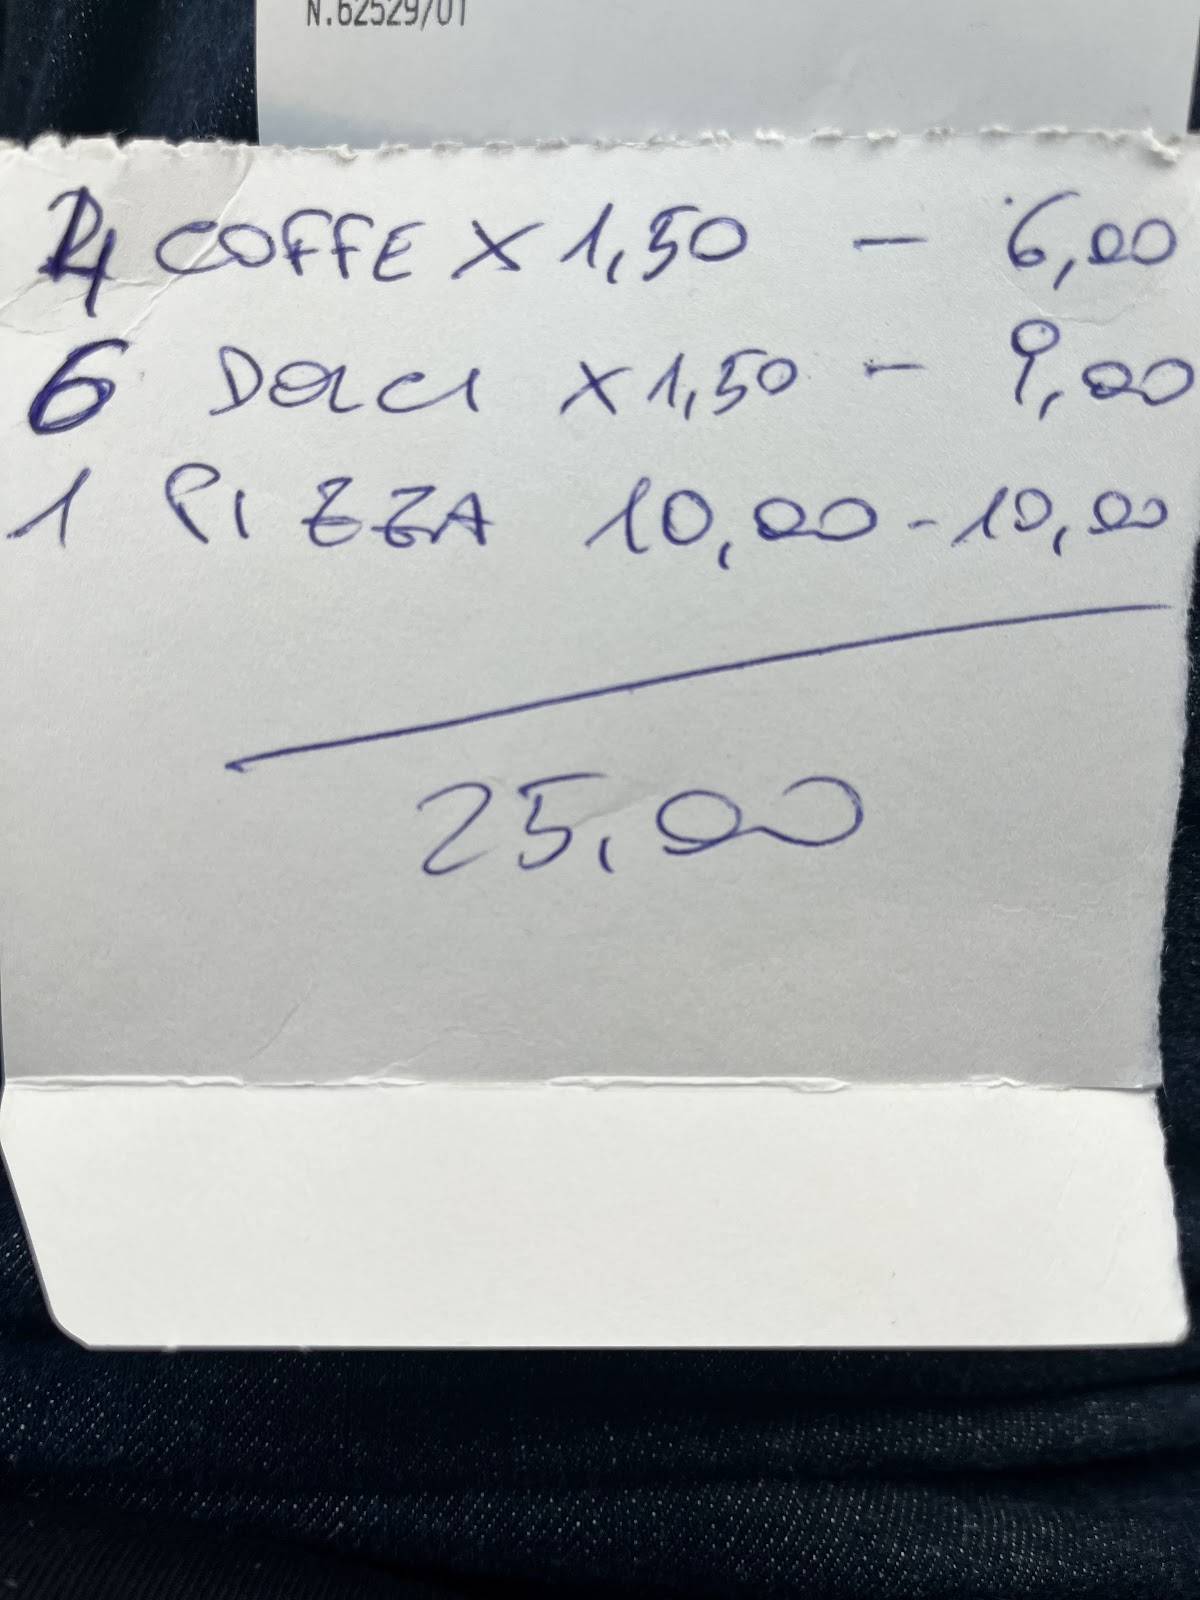 N.62529/01
4 COFFE X 1,50 - 6,00
6 DOLCI X 1,50 - 9,00
1 PIZZA 10,00 - 10,00
25,00